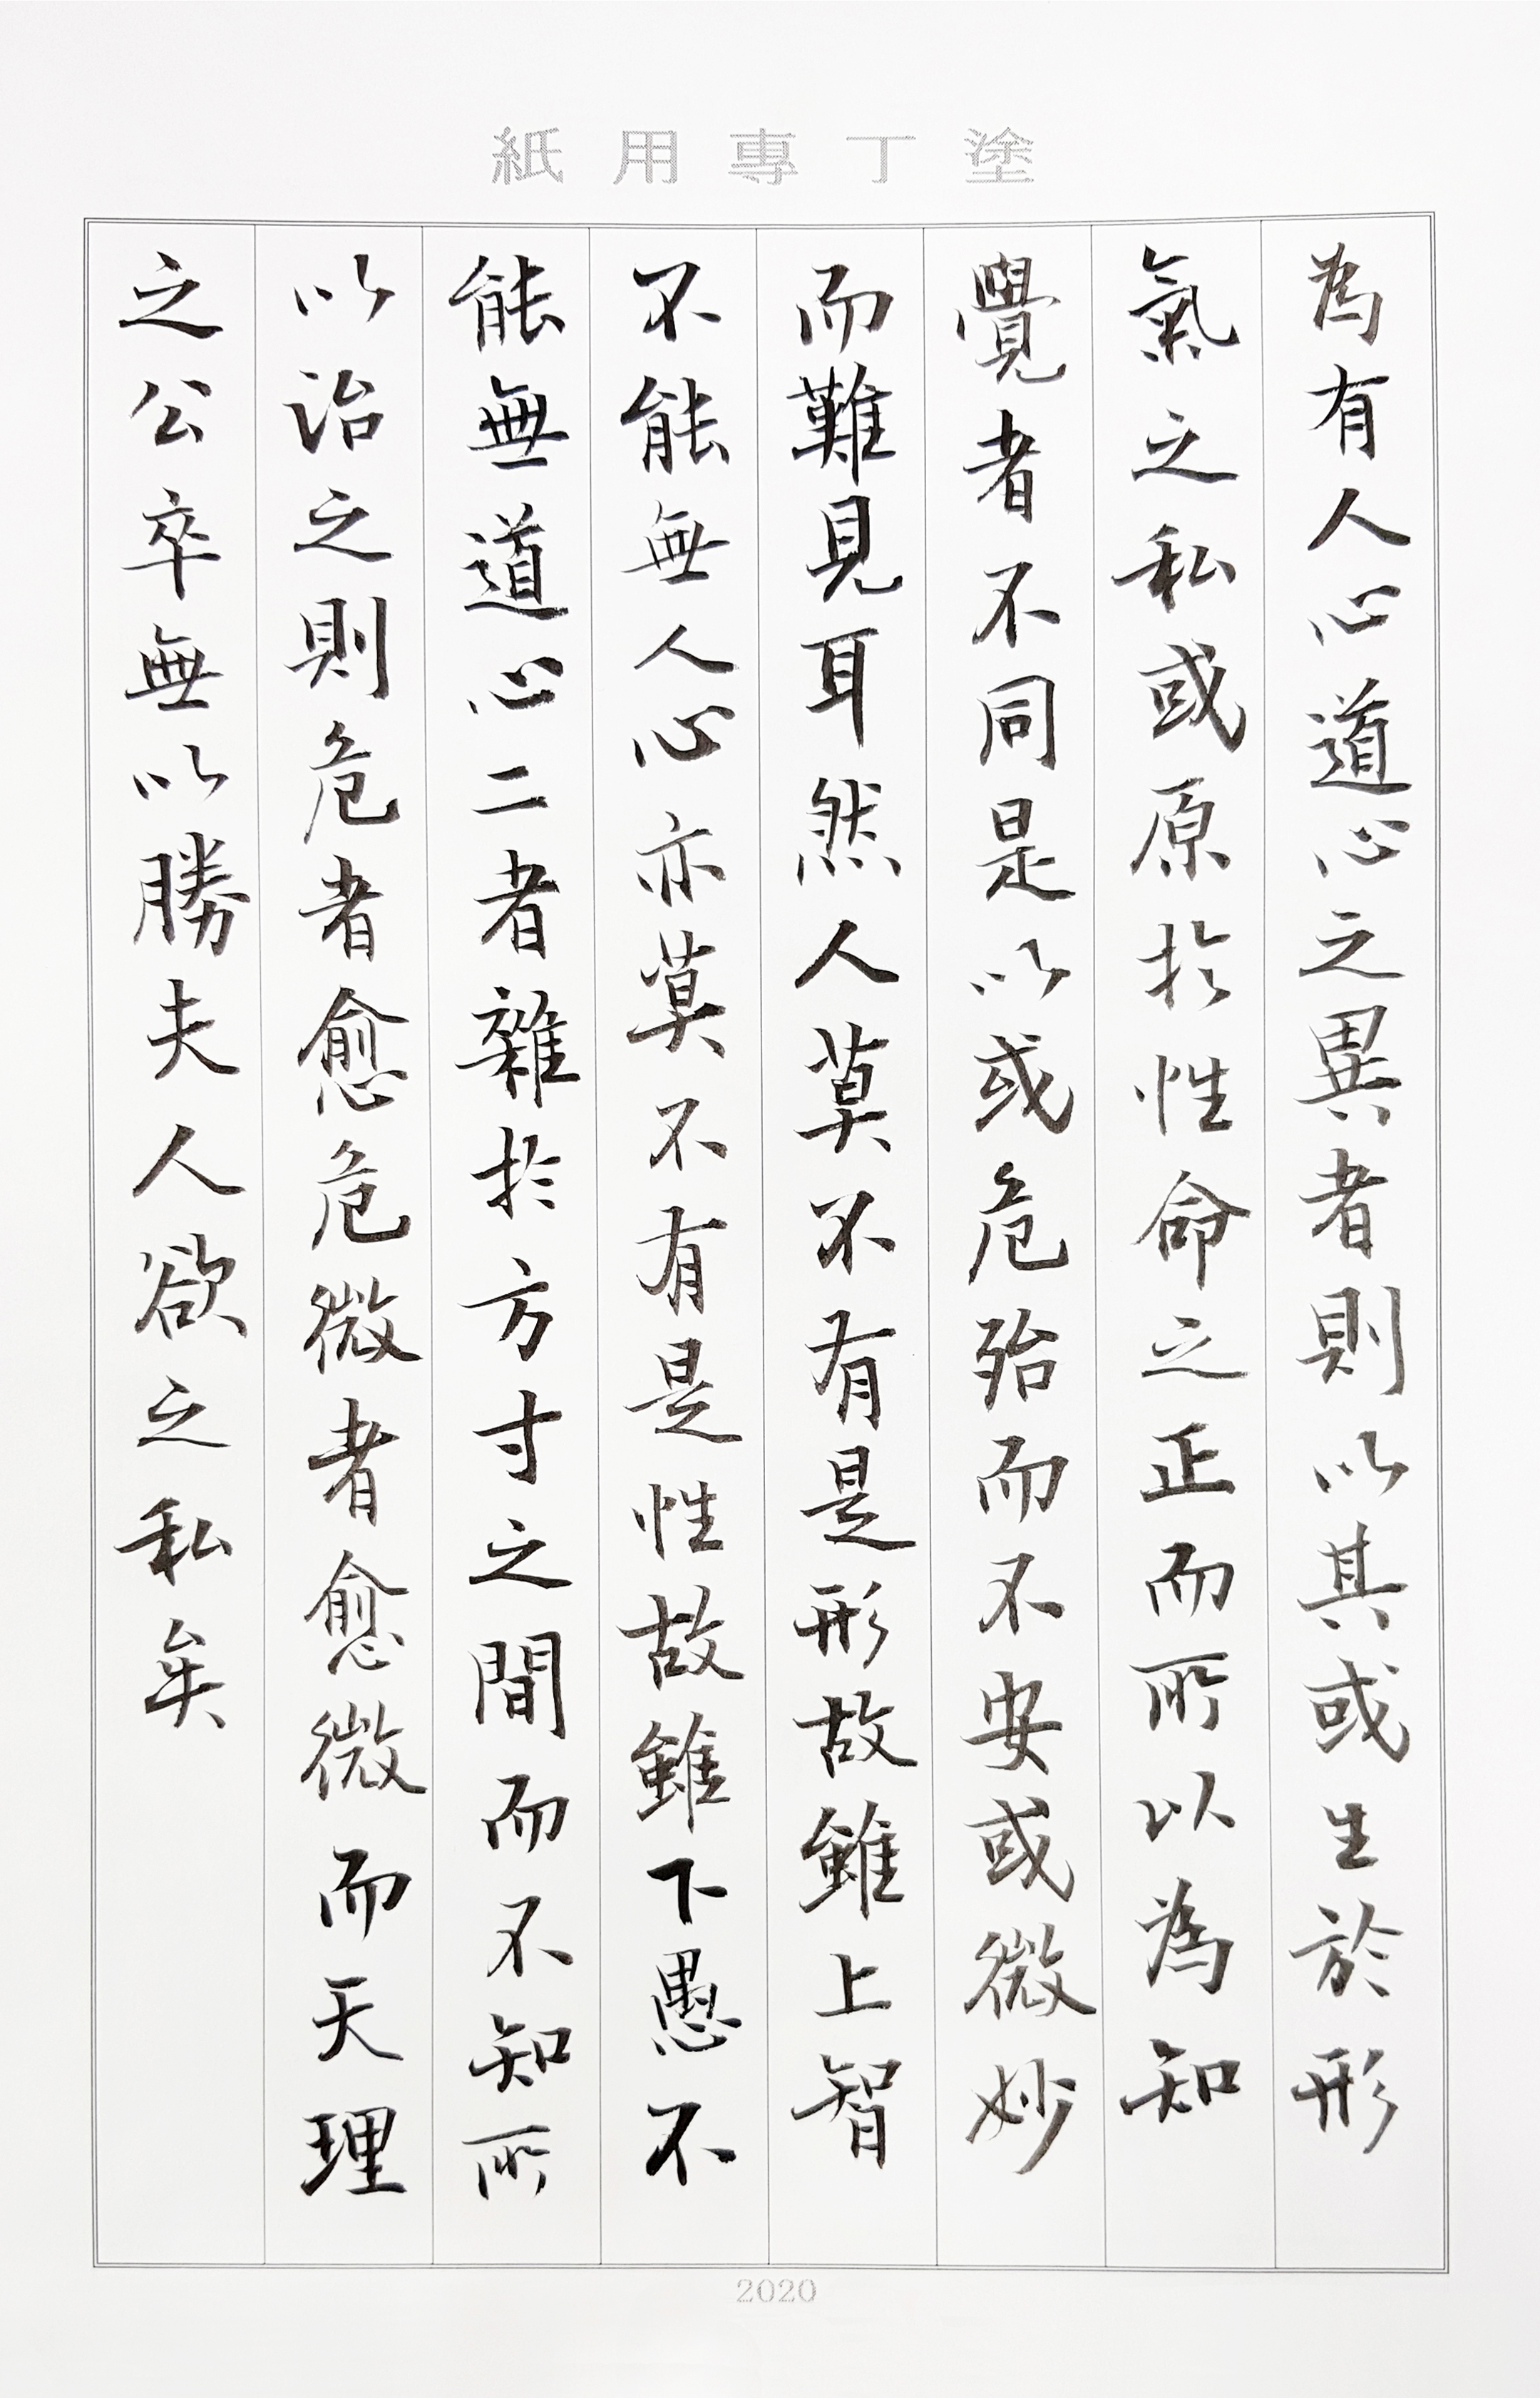 塗丁專用紙
為有人心道心之異者則以其或生於形
氣之私或原於性命之正而所以為知
覺者不同是以或危殆而不安或微妙
而難見耳然人莫不有是形故雖上智
不能無人心亦莫不有是性故雖下愚不
能無道心二者雜於方寸之間而不知所
以治之則危者愈危微者愈微而天理
之公卒無以勝夫人欲之私矣
2020